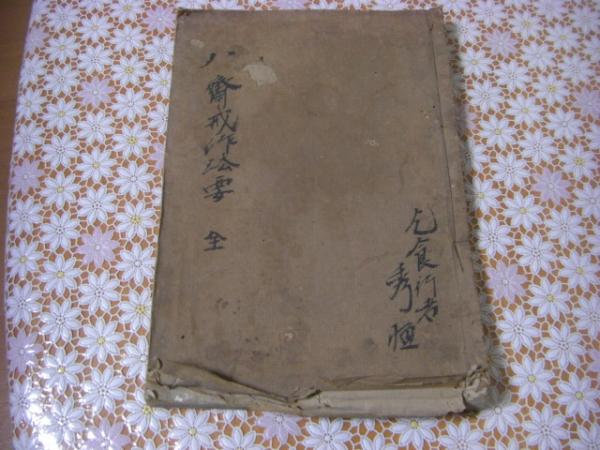 八齋戒作法要 全
乞食行者
秀恒